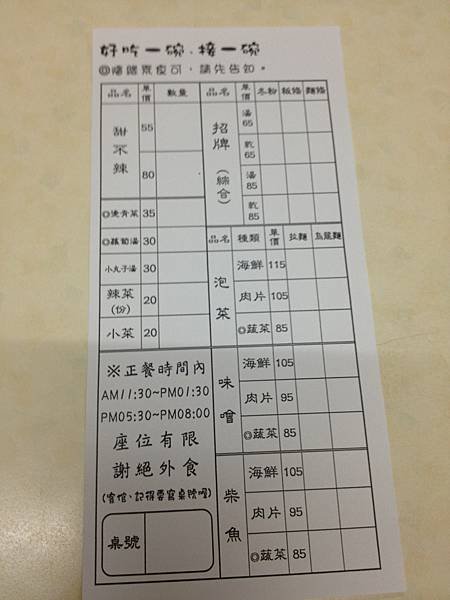 好吃一碗、接一碗
◎隨時素食可，請先告知。
品名 單價 數量
甜不辣 55
80
◎燙青菜 35
◎蘿蔔湯 30
小丸子湯 30
辣菜(份) 20
小菜 20
※正餐時間內
AM11:30~PM01:30
PM05:30~PM08:00
座位有限
謝絕外食
(客倌、記得要寫桌號喔)
桌號
品名 單價 冬粉 粄條 麵條
招牌(綜合) 湯65
乾65
湯85
乾85
品名 種類 單價 拉麵 烏龍麵
泡菜 海鮮 115
肉片 105
◎蔬菜 85
味噌 海鮮 105
肉片 95
◎蔬菜 85
柴魚 海鮮 105
肉片 95
◎蔬菜 85